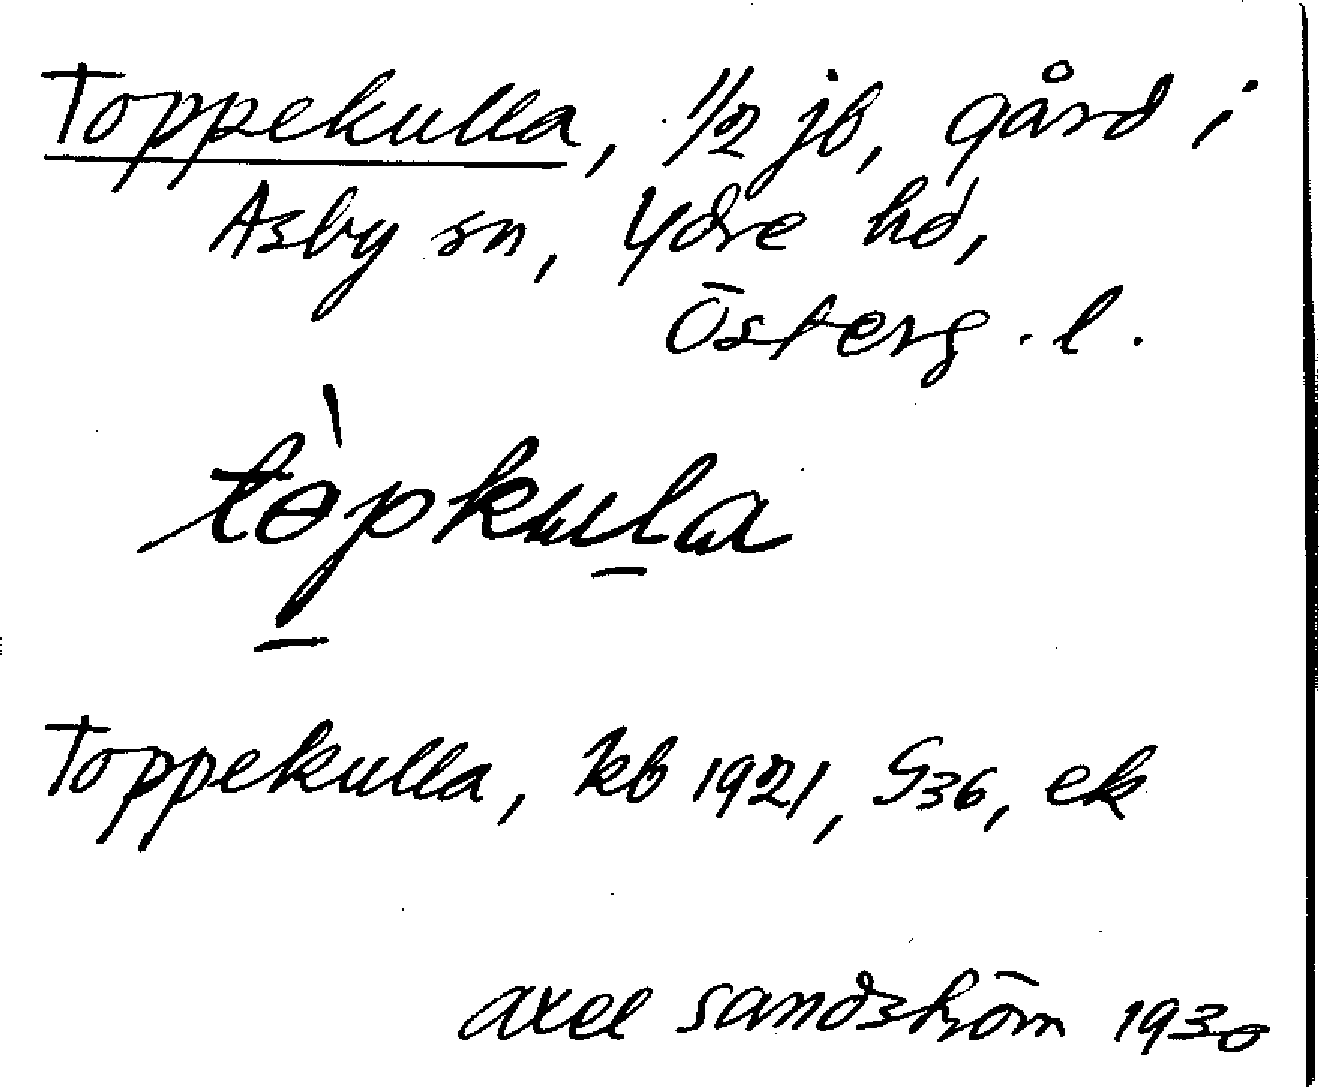 Toppekulla, 1/2 jb, gård i
Asby sn, Ydre hd,
Österg. l.
tòpkula
Toppekulla, kb 1921, S36, ek
axel sandström 1930